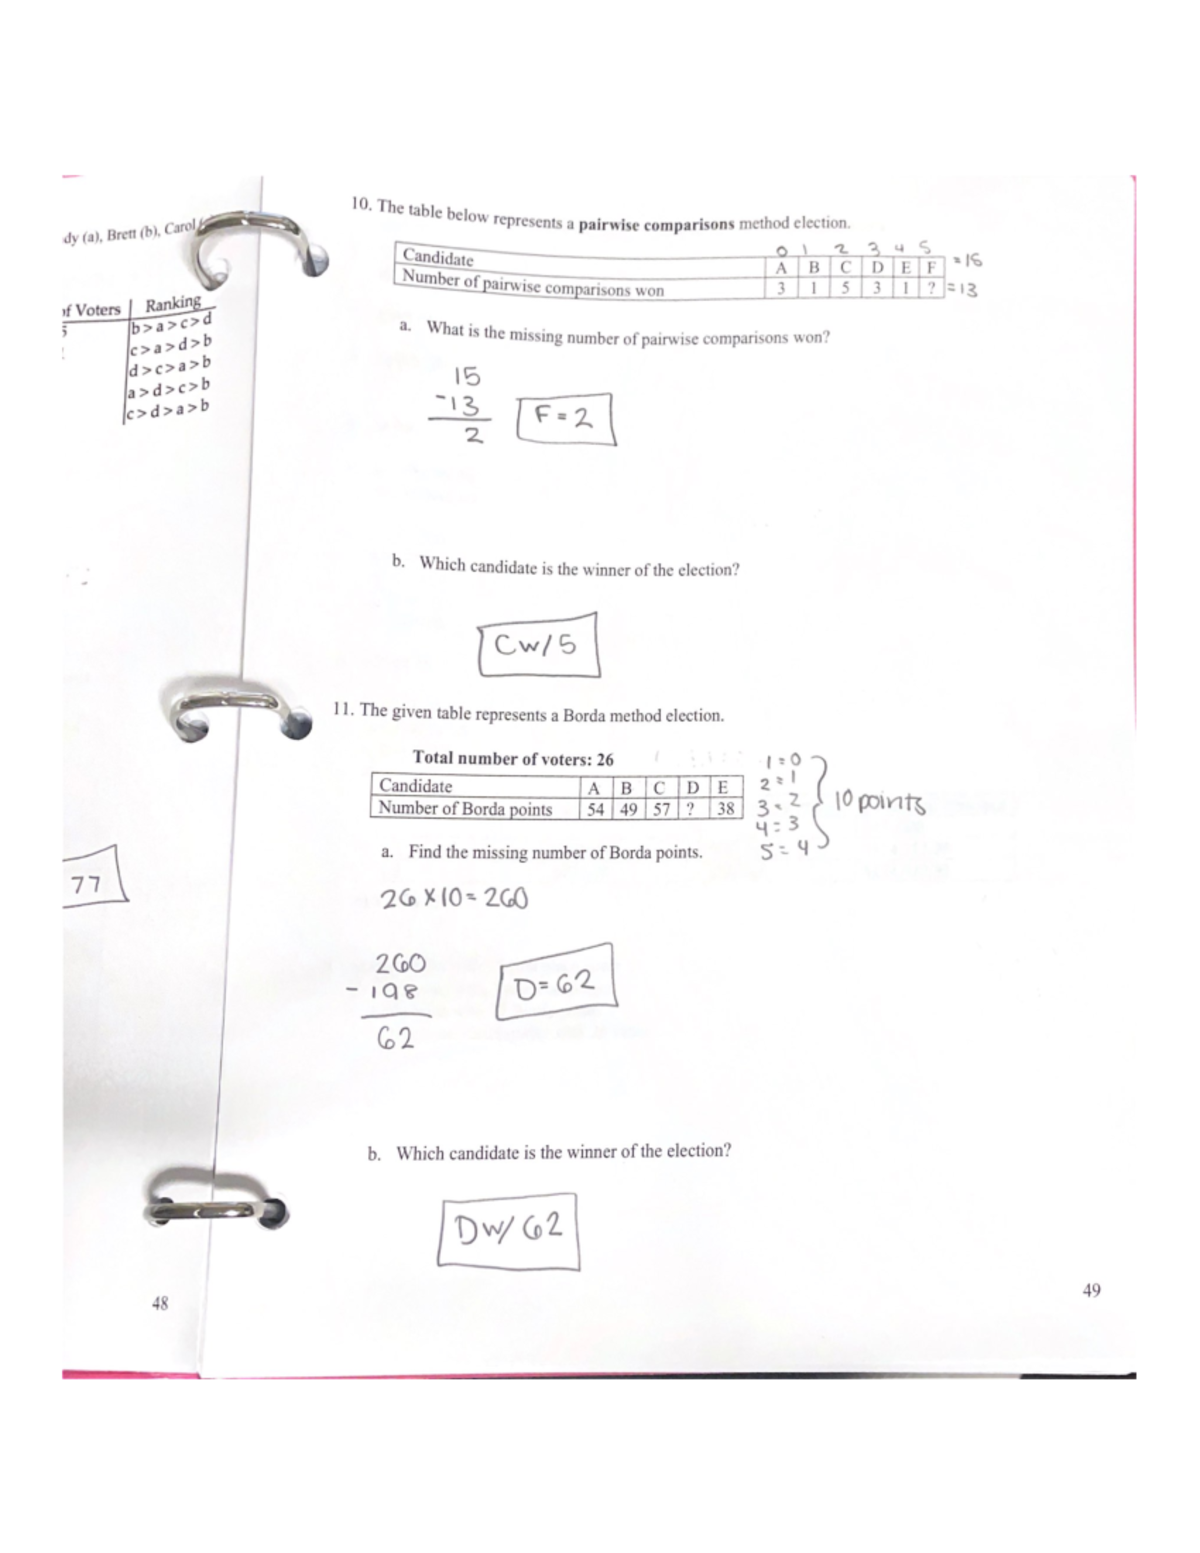 dy (a), Brett (b), Carol
of Voters | Ranking
5 b>a>c>d
c>a>d>b
d>c>a>b
a>d>c>b
c>d>a>b
77
48
10. The table below represents a pairwise comparisons method election.
0 1 2 3 4 5 = 15
Candidate A B C D E F
Number of pairwise comparisons won 3 1 5 3 1 ? = 13
a. What is the missing number of pairwise comparisons won?
15
-13
2
F = 2
b. Which candidate is the winner of the election?
C w/ 5
11. The given table represents a Borda method election.
Total number of voters: 26
Candidate A B C D E
Number of Borda points 54 49 57 ? 38
1 = 0
2 = 1
3 = 2
4 = 3
5 = 4
10 points
a. Find the missing number of Borda points.
26 x 10 = 260
260
- 198
62
D = 62
b. Which candidate is the winner of the election?
D w/ 62
49